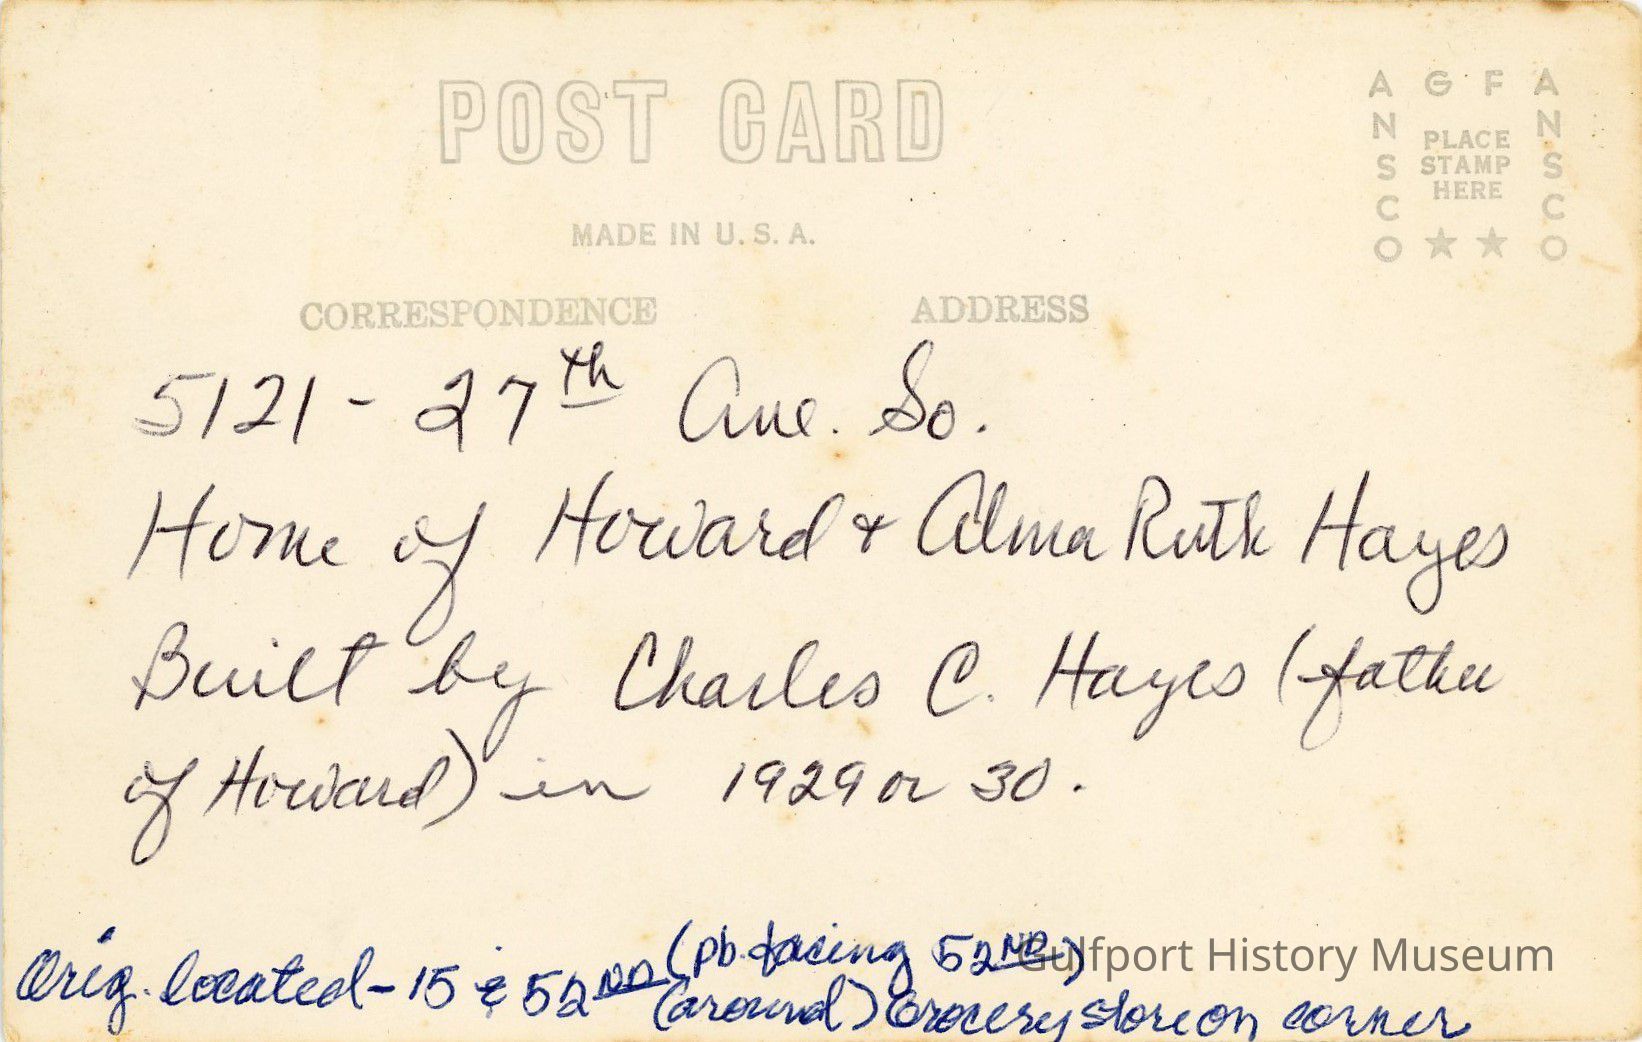 POST CARD
MADE IN U.S.A.
CORRESPONDENCE ADDRESS
AGFA
ANSCO
ANSCO
PLACE
STAMP
HERE
5121 - 27th Ave. So.
Home of Howard & Alma Ruth Hayes
Built by Charles C. Hayes (father
of Howard) in 1929 or 30.
(pb. facing 52ND)
Orig. located - 15 & 52ND (around) Grocery store on corner
Gulfport History Museum